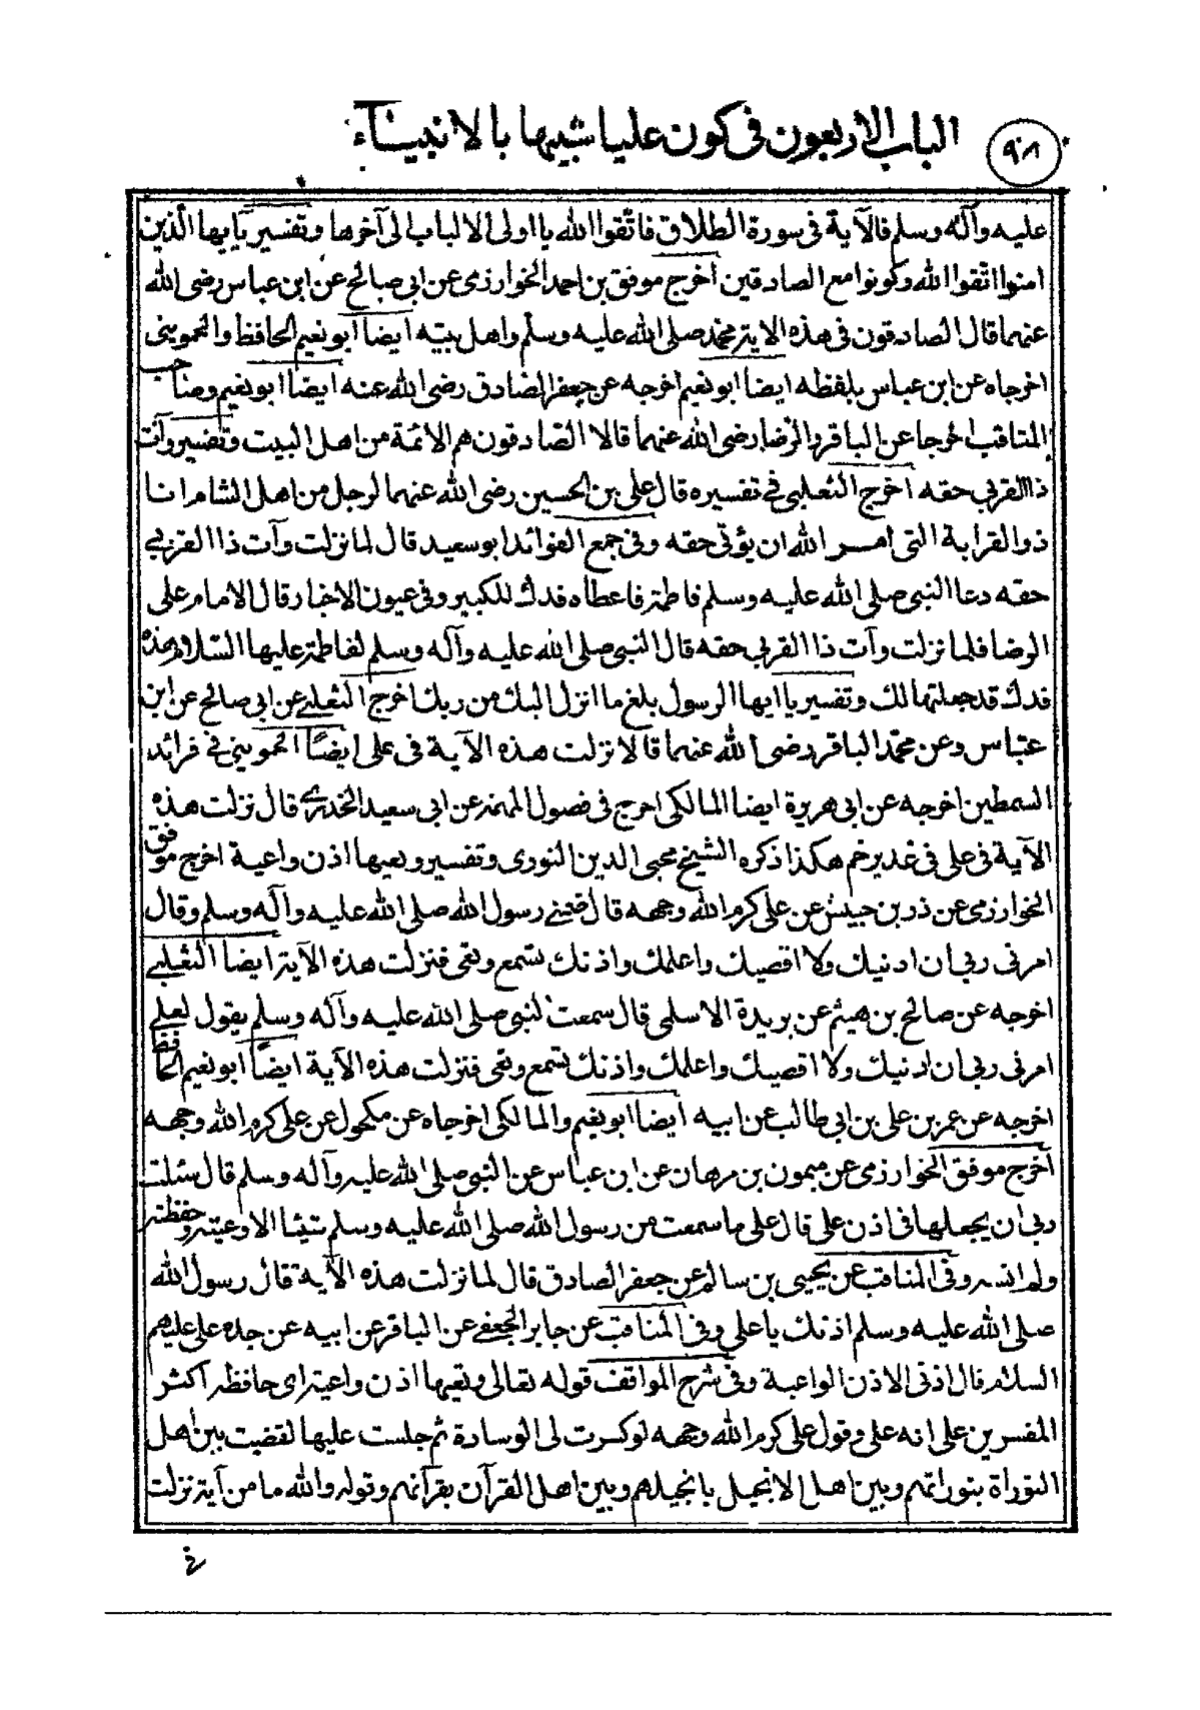 الباب الاربعون فى كون عليا شبيها بالانبيآء
٩٨
عليه وآله وسلم فالآية فى سورة الطلاق فاتقوا الله يا اولى الالباب الى آخرها وتفسير يآيها الذين
امنوا اتقوا الله وكونوا مع الصادقين اخرج موفق بن احمد الخوارزمى عن ابى صالح عن ابن عباس رضى الله
عنهما قال الصادقون فى هذه الاية محمد صلى الله عليه وسلم واهل بيته ايضا ابو نعيم الحافظ والحموينى
اخرجاه عن ابن عباس بلفظه ايضا ابو نعيم اخرجه عن جعفر الصادق رضى الله عنه ايضا ابو نعيم وصاحب
المناقب اخرجا عن الباقر والرضا رضى الله عنهما قالا الصادقون هم الائمة من اهل البيت وتفسير وآت
ذا القربى حقه اخرج الثعلبى فى تفسيره قال على بن الحسين رضى الله عنهما لرجل من اهل الشام انا
ذو القرابة التى امر الله ان يؤتى حقه وفى جمع الفوائد ابو سعيد قال لما نزلت وآت ذا القربى
حقه دعا النبى صلى الله عليه وسلم فاطمة فاعطاه فدك للكبير وفى عيون الاخبار قال الامام على
الرضا فلما نزلت وآت ذا القربى حقه قال النبى صلى الله عليه وآله وسلم لفاطمة عليها السلام هذه
فدك قد جعلتها لك وتفسير يا ايها الرسول بلغ ما انزل اليك من ربك اخرج الثعلبى عن ابى صالح عن ابن
عباس وعن محمد الباقر رضى الله عنهما قالا نزلت هذه الآية فى على ايضًا الحموينى فى فرائد
السمطين اخرجه عن ابى هريرة ايضا المالكى اخرج فى فصول المهمة عن ابى سعيد الخدرى قال نزلت هذه
الآية فى على فى غدير خم هكذا ذكره الشيخ محيى الدين النووى وتفسير وتعيها اذن واعية اخرج موفق
الخوارزمى عن ذر بن حبيش عن على كرم الله وجهه قال ضمنى رسول الله صلى الله عليه وآله وسلم وقال
امرنى ربى ان ادنيك ولا اقصيك واعلمك واذنك تسمع وتعى فنزلت هذه الآية ايضا الثعلبى
اخرجه عن صالح بن هيثم عن بريدة الاسلمى قال سمعت النبى صلى الله عليه وآله وسلم يقول لعلى
امرنى ربى ان ادنيك ولا اقصيك واعلمك واذنك تسمع وتعى فنزلت هذه الآية ايضًا ابو نعيم الحافظ
اخرجه عن عمر بن على بن ابى طالب عن ابيه ايضا ابو نعيم والمالكى اخرجاه عن مكحول عن على كرم الله وجهه
اخرج موفق الخوارزمى عن ميمون بن مرهان عن ابن عباس عن النبى صلى الله عليه وآله وسلم قال سئلت
ربى ان يجعلها فى اذن على قال على ما سمعت من رسول الله صلى الله عليه وسلم شيئا الا وعيته وحفظته
ولم انسه وفى المناقب عن يحيى بن سالم عن جعفر الصادق قال لما نزلت هذه الآية قال رسول الله
صلى الله عليه وسلم اذنك يا على وفى المناقب عن جابر الجعفى عن الباقر عن ابيه عن جده على عليهم
السلام قال اذنى الاذن الواعية وفى شرح المواقف قوله تعالى وتعيها اذن واعية اى حافظة اكثر
المفسرين على انه على وقول على كرم الله وجهه لو كسرت لى الوسادة ثم جلست عليها لقضيت بين اهل
التوراة بتوراتهم وبين اهل الانجيل بانجيلهم وبين اهل القرآن بقرآنهم وقوله والله ما من آية نزلت
فى